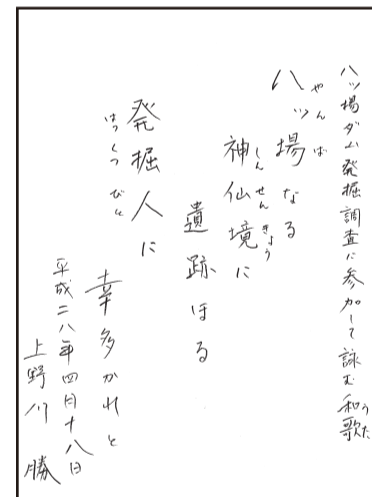 八ッ場ダム発掘調査に参加して詠む和歌
うた
八ッ場なる
やんば
神仙境に
しんせんきょう
遺跡ほる
発掘人に
はっくつびと
幸多かれと
平成二八年四月十八日
上野川 勝